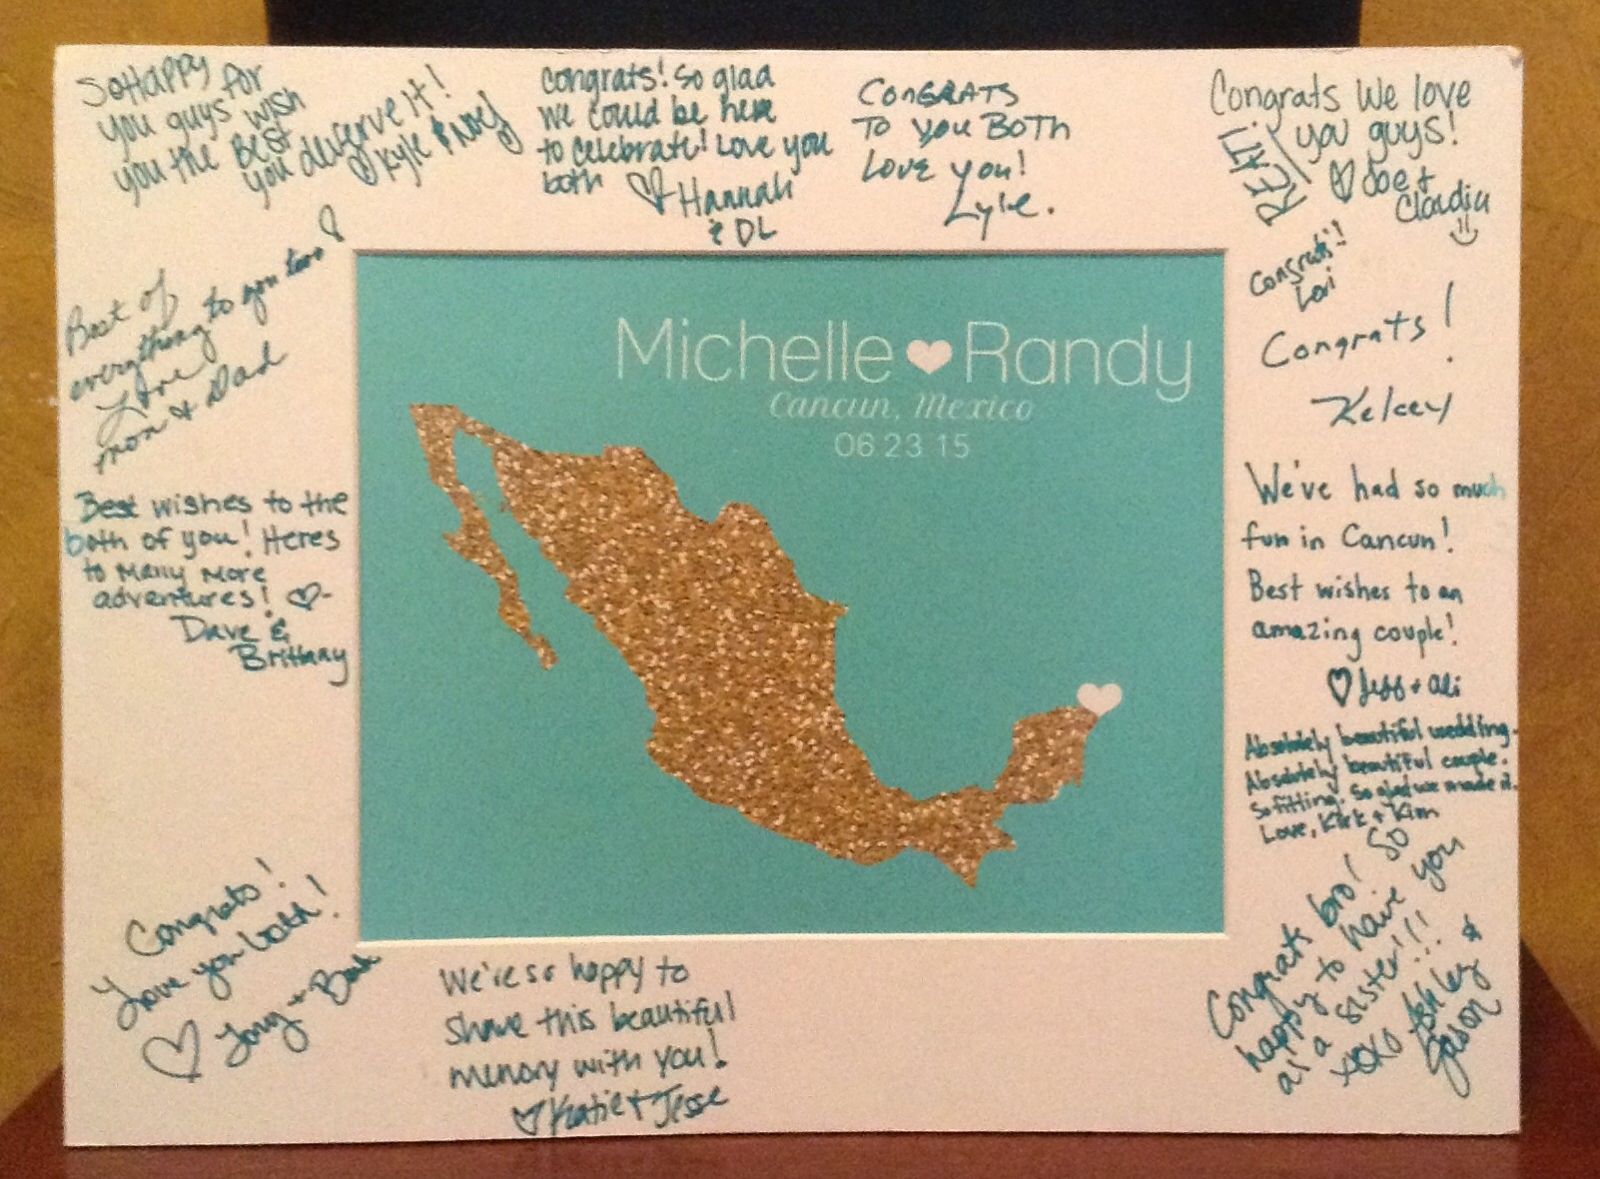 So Happy
you guys for
you the Best wish
you deserve it!
Kyle &
Congrats! So glad
we could be here
to celebrate! Love you
both
Hannah
& DL
CONGRATS
TO YOU BOTH
LOVE YOU!
Lyle.
Congrats We love
you guys!
Joe +
Claudia
REAL!
Congrats!!
Lori
Congrats!
Kelcey
We've had so much
fun in Cancun!
Best wishes to an
amazing couple!
Jess + Ali
Absolutely beautiful wedding.
Absolutely beautiful couple.
So fitting. So glad we made it.
Love, Kirk + Kim
Congrats bro! So
happy to have you
as a sister!!!
xoxo Ashley &
Jason
Best of
everything to you two!
Love
mom & Dad
Best wishes to the
both of you! Heres
to many more
adventures!
Dave &
Brittany
Congrats!
Love you both!
Tony +
We're so happy to
share this beautiful
memory with you!
Katie + Jesse
Michelle Randy
Cancun, Mexico
06 23 15